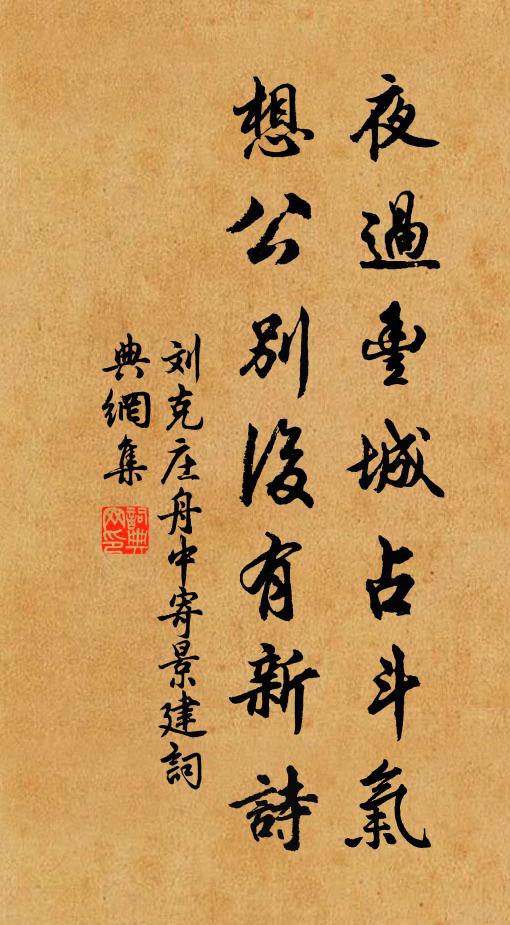 夜過豐城占斗氣
想公別後有新詩
刘克庄舟中寄景建詞
典網集
詞典
网印